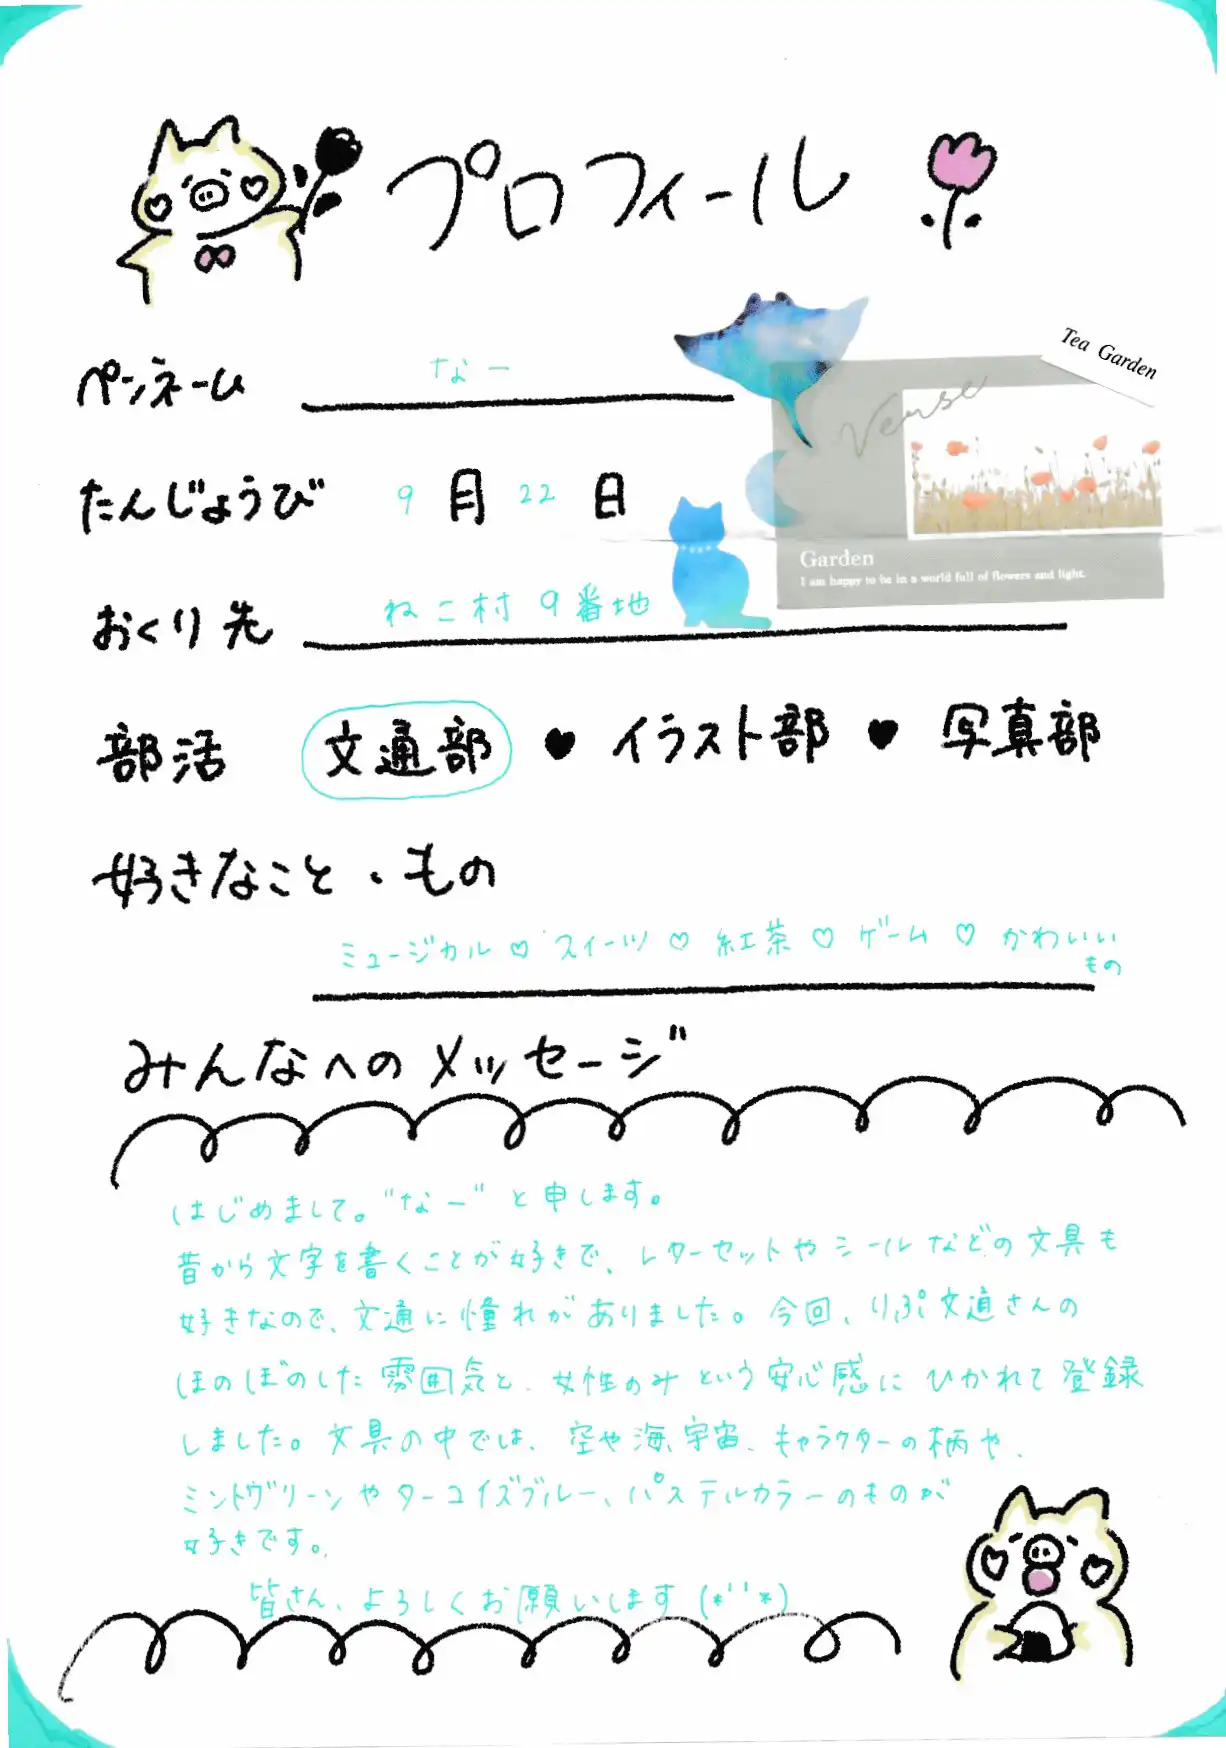 プロフィール
ペンネーム なー
Tea Garden
Verse
たんじょうび 9月22日
Garden
I am happy to be in a world full of flowers and light.
おくり先 ねこ村9番地
部活 文通部 ♥ イラスト部 ♥ 写真部
好きなこと・もの
ミュージカル ♡ スイーツ ♡ 紅茶 ♡ ゲーム ♡ かわいい
もの
みんなへのメッセージ
はじめまして。"なー"と申します。
昔から文字を書くことが好きで、レターセットやシールなどの文具も
好きなので、文通に憧れがありました。今回、りぷ文通さんの
ほのぼのした雰囲気と、女性のみという安心感にひかれて登録
しました。文具の中では、空や海、宇宙、キャラクターの柄や、
ミントグリーンやターコイズブルー、パステルカラーのものが
好きです。
皆さん、よろしくお願いします(*''*)